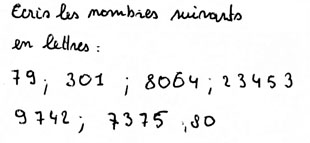 Ecris les nombres suivants
en lettres :
79 ; 301 ; 8064 ; 23453
9742 ; 7375 ; 80